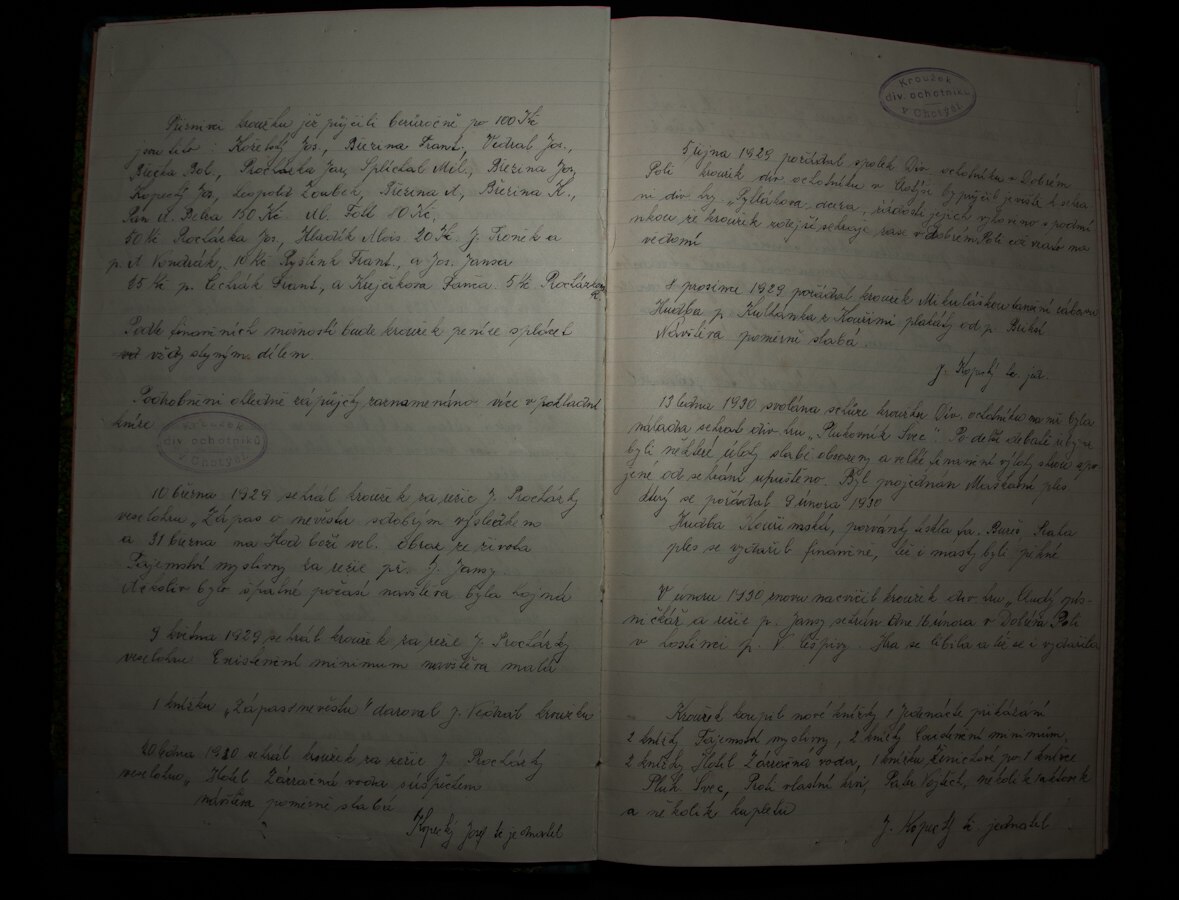 kroužku již půjčili bezúročně po 100 Kč
jsou tito : Kořetky Jos., Březina Frant., Vedral Jos.,
Bol., Procházka Jar., Splíchal Mil., Březina Jos,
Kopecký Jos, Leopold Zoubek, Březina A, Březina K.,
Pan A. 150 Kč Al. 80 Kč,
50 Kč Procházka Jos., Hladík Alois. 20 Kč J. Froněk a
p. A Vondrák, 10 Kč Frant, a Jos. Jansa
25 Kč p. Čechrák Frant, a Krejčíkova Fanča. 5 Kč Procházka
K.
Podle finančních možností bude kroužek peníze splácet
vždy stejným dílem
Podrobnění ohledně zápůjčky zaznamenáno více v pokladní
knize
Kroužek
div. ochotníků
v Chotýši
10 března 1929 sehrál kroužek za režie J. Procházky
veselohru „Zápas o nevěstu s dobrým výsledkem
a 31 března na Hod boží vel. Obraz ze života
Tajemství myslivny za režie př. J. Jansy
Ačkoliv bylo špatné počasí navštěva byla hojná
9 května 1929 sehrál kroužek za režie J. Procházky
veselohru Existenční minimum navštěva malá
1 knížku „Zápas o nevěstu" daroval J. Vedral kroužku
20 ledna 1930 sehrál kroužek za režie J. Procházky
veselohru „Hotel Zázračná voda s úspěchem
návštěva poměrně slabá
Kopecký Josef t.č. jednatel
Kroužek
div. ochotníků
v Chotýši
5 října 1929 pořádal spolek Div. ochotníků v Dobrém
Poli kroužek div. ochotníků v Chotýši jeviště k sehrá
ní div. hry „Pytlákova dcera, žádosti jejich vyhověno s podmí
nkou že kroužek později sehraje zase v Dobrém Poli
vědomí
8 prosince 1929 pořádal kroužek Mikulášskou taneční zábavu
Hudba p. Kulhánka z Kouřimi plakáty od p. Bureš
Návštěva poměrně slabá.
J. Kopecký t.č. jed.
13 ledna 1930 svolána schůze kroužku Div. ochotníků na níž byla
nálada sehrát div. hru „Plukovník Švec". Po delší debatě
byli některé úlohy slabě obsazeny a velké finanční výlohy spo
jené od sehrání upuštěno. Byl projednán Maškarní ples
který se pořádal 9 února 1930
Hudba Kouřimská, pozvánky fa. Bureš Skala
ples se vydařil finančně, též i masky byli pěkné
V únoru 1930 znovu nacvičil kroužek div. hru „Chudý pís-
ničkář a režie p. Jansy sehrán dne února v Dobrém Poli
v hostinci p. V Hra se líbila a též se i vydařila
Kroužek koupil nové knížky 1 Jedenácté přikázání
2 knížky Tajemství myslivny, 2 knížky Existenční minimum,
2 knížky Hotel Zázračná voda, 1 knížku Ženichové po 1 knížce
Pluk. Švec, Proti vlastní krvi, Páter Vojtěch, několik
a několik kupletů
J. Kopecký t.č. jednatel